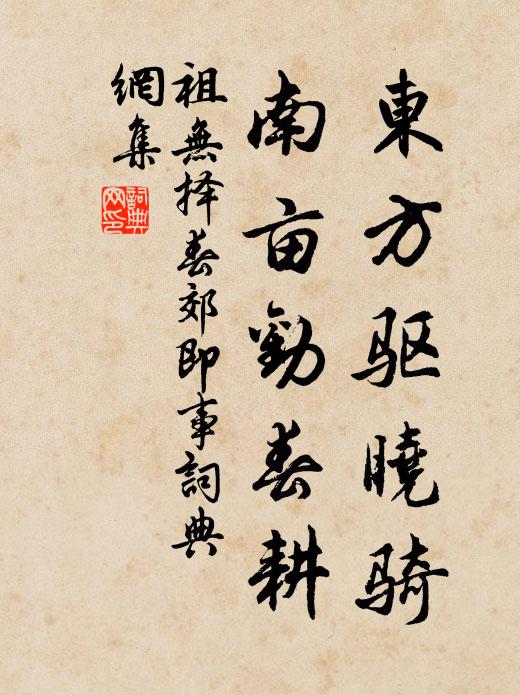 東方驱曉骑
南亩勸春耕
祖無择春郊即事詞典
網集
詞典
网印